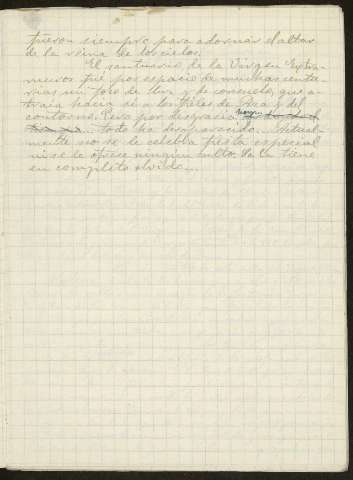 fueron siempre para adornar el altar
de la reina de los cielos.
El santuario de la Virgen Extra-
muros fué por espacio de muchas centu-
rias un foco de luz y de consuelo, que a-
traía hacia sí a los fieles de y del
contorno. Pero por desgracia
todo ha desaparecido. Actual-
mente no se le celebra fiesta especial
ni se le ofrece ningún culto. Se la tiene
en completo olvido.